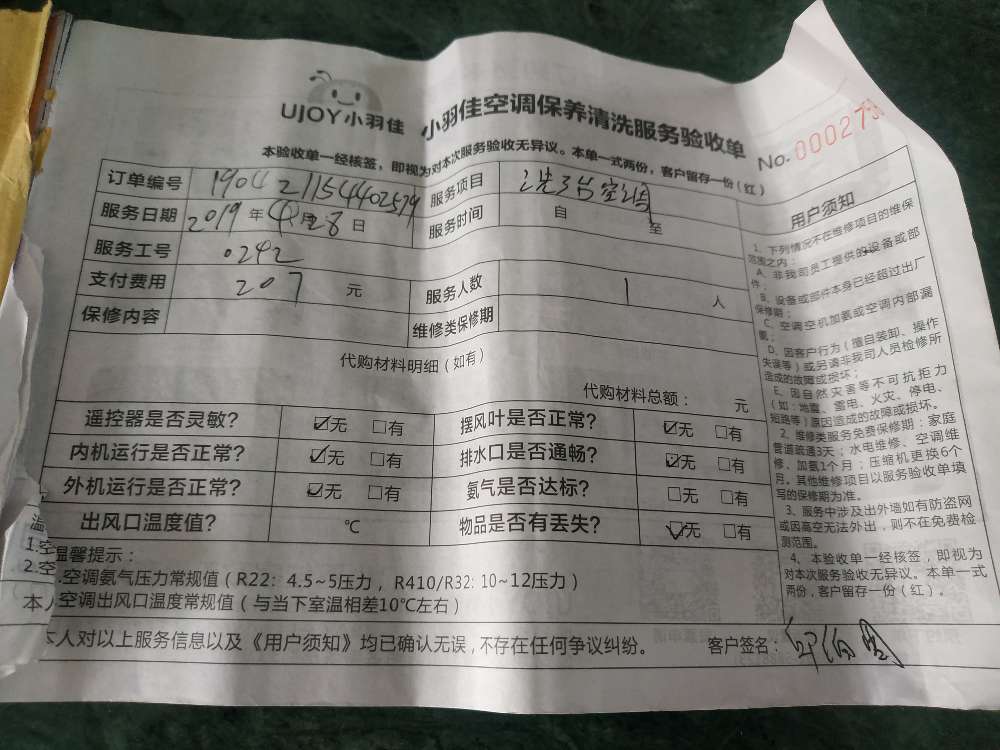 UJOY小羽佳
小羽佳空调保养清洗服务验收单
No. 000273
本验收单一经核签，即视为对本次服务验收无异议。本单一式两份，客户留存一份（红）
订单编号 190421154402579 服务项目 洗3台空调
服务日期 2019 年 4 月 28 日 服务时间 自 至
服务工号 0242
支付费用 207 元 服务人数 1 人
保修内容 维修类保修期
代购材料明细（如有）
代购材料总额： 元
遥控器是否灵敏？ ☑无 □有 摆风叶是否正常？ ☑无 □有
内机运行是否正常？ ☑无 □有 排水口是否通畅？ ☑无 □有
外机运行是否正常？ ☑无 □有 氨气是否达标？ □无 □有
出风口温度值？ ℃ 物品是否有丢失？ ☑无 □有
温馨提示：
.空调氨气压力常规值（R22：4.5~5压力，R410/R32: 10~12压力）
空调出风口温度常规值（与当下室温相差10℃左右）
本人对以上服务信息以及《用户须知》均已确认无误，不存在任何争议纠纷。
客户签名：
用户须知
1、下列情况不在维修项目的维保
范围之内：
A、非我司员工提供的设备或部
件；
B、设备或部件本身已经超过出厂
保修期；
C、空调空机加氨或空调内部漏
氨；
D、因客户行为（擅自装卸、操作
失误等）或另请非我司人员检修所
造成的故障或损坏；
E、因自然灾害等不可抗拒力
（如：地震、雷电、火灾、停电、
短路等）原因造成的故障或损坏。
2、维修类服务免费保修期：家庭
管道疏通3天；水电维修、空调维
修、加氨1个月；压缩机更换6个
月。其他维修项目以服务验收单填
写的保修期为准。
3、服务中涉及出外墙如有防盗网
或因高空无法外出，则不在免费检
测范围。
4、本验收单一经核签，即视为
对本次服务验收无异议。本单一式
两份，客户留存一份（红）。
温
1.空
2.空
本人